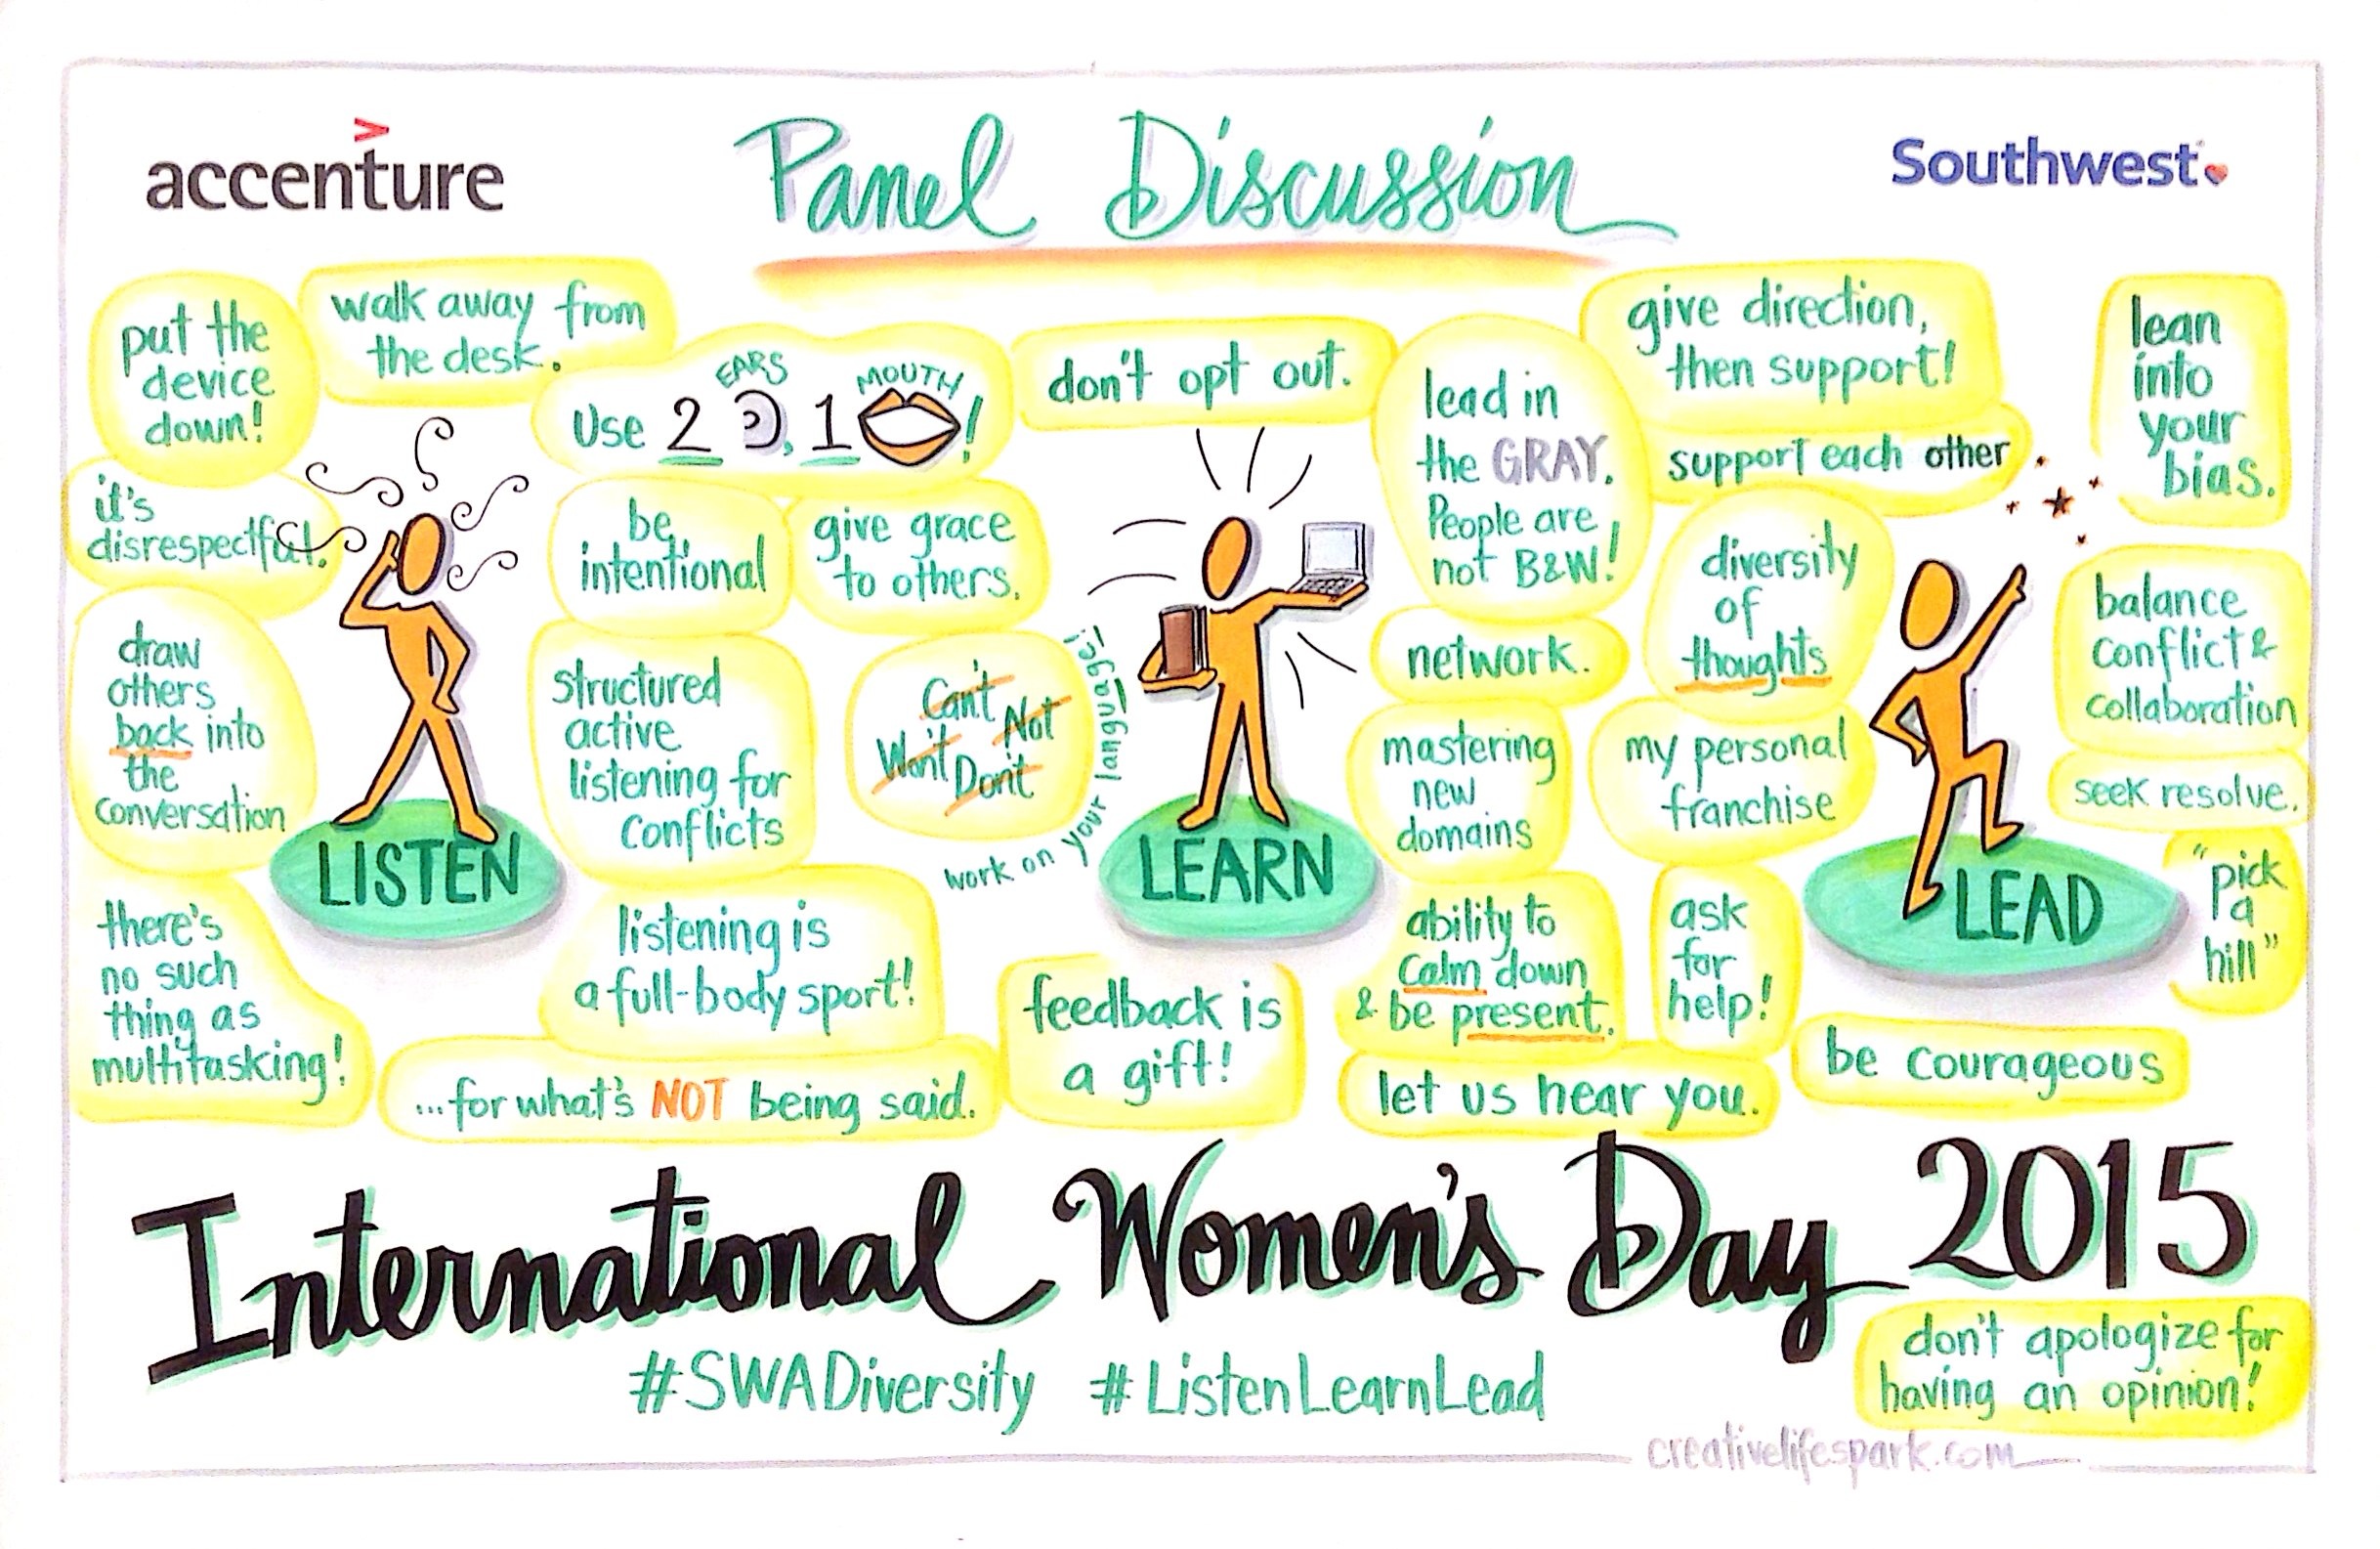 accenture
>
Panel Discussion
Southwest
put the
device
down!
walk away from
the desk.
EARS
MOUTH
Use 2 , 1 !
don't opt out.
lead in
the GRAY.
People are
not B&W!
give direction,
then support!
support each other
lean
into
your
bias.
it's
disrespectful.
be
intentional
give grace
to others.
diversity
of
thoughts
balance
conflict &
collaboration
draw
others
back into
the
conversation
structured
active
listening for
conflicts
Can't
Not
Won't
Don't
work on your language!
network.
mastering
new
domains
my personal
franchise
seek resolve.
"pick
a
hill"
LISTEN
LEARN
LEAD
there's
no such
thing as
multitasking!
listening is
a full-body sport!
...for what's NOT being said.
feedback is
a gift!
ability to
calm down
& be present.
ask
for
help!
let us hear you.
be courageous
International Women's Day 2015
#SWADiversity #ListenLearnLead
don't apologize for
having an opinion!
creativelifespark.com